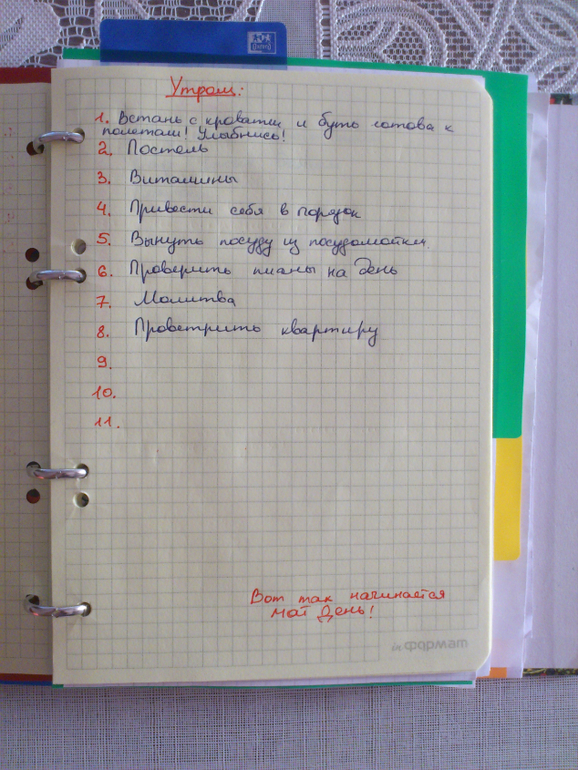 Oxford
Утром:
1. Встань с кровати и буть готова к
полетам! Улыбнись!
2. Постель
3. Витамины
4. Привести себя в порядок
5. Вынуть посуду из посудомойки.
6. Проверить планы на день
7. Молитва
8. Проветрить квартиру
9.
10.
11.
Вот так начинается
мой День!
inФОРМАТ